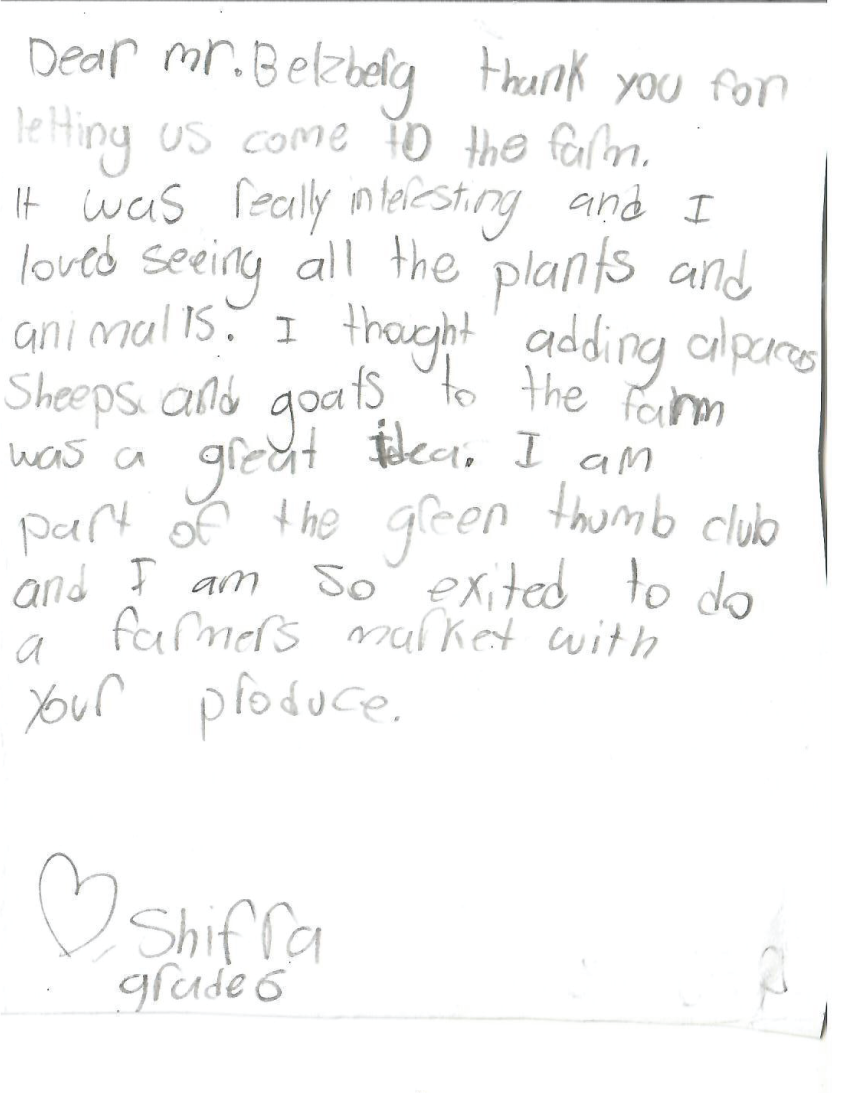 Dear mr. Belzberg thank you for
letting us come to the farm.
It was really interesting and I
loved seeing all the plants and
animalls. I thought adding alpacas
Sheeps and goats to the farm
was a great idea. I am
part of the green thumb club
and I am so exited to do
a farmers market with
your produce.
Shifra
grade 6